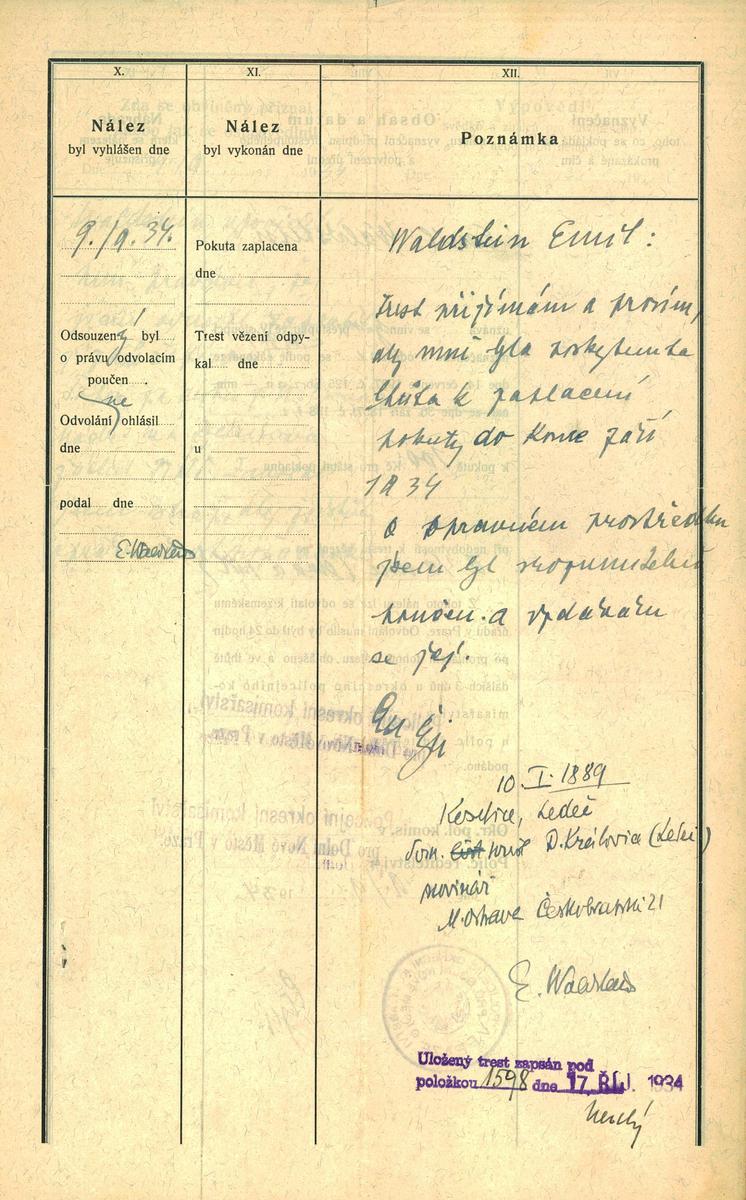 X.
Nález
byl vyhlášen dne
9./9. 34.
Odsouzený byl
o právu odvolacím
poučen.
ne
Odvolání ohlásil
dne
podal dne
XI.
Nález
byl vykonán dne
Pokuta zaplacena
dne
Trest vězení odpy-
kal dne
u
XII.
Poznámka
Waldstein Emil:
Trest přijímám a prosím,
aby mně byla poskytnuta
lhůta k zaplacení
pokuty do konce září
1934
O opravném prostředku
jsem byl srozumitelně
poučen a vzdávám
se jej.
10. I. 1889
Ledeč
dom. přísl. D. Královice
novinář
M. Ostrava Českobratrská 21
Uložený trest zapsán pod
položkou 1598 dne 17. ŘÍJ. 1934